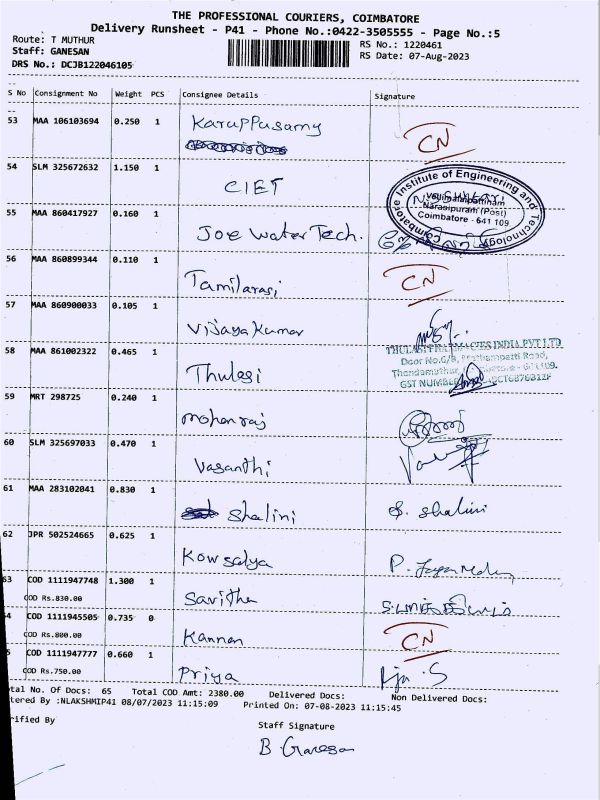 THE PROFESSIONAL COURIERS, COIMBATORE
Delivery Runsheet - P41 - Phone No.:0422-3505555 - Page No.:5
Route: T MUTHUR
RS No.: 1220461
Staff: GANESAN
RS Date: 07-Aug-2023
DRS No.: DCJB122046105
S No Consignment No Weight PCS Consignee Details Signature
53 MAA 106103694 0.250 1 Karuppusamy CN
54 SLM 325672632 1.150 1 CIET
Coimbatore Institute of Engineering and Technology
Vellimalaipattinam
Narasipuram (Post)
Coimbatore - 641 109
55 MAA 860417927 0.160 1 Joe Water Tech.
56 MAA 860899344 0.110 1 Tamilarasi CN
57 MAA 860900033 0.105 1 Vijayakumar
58 MAA 861002322 0.465 1 Thulasi
THULASI PHARMACIES INDIA PVT LTD
Door No.6/8, Road,
Thondamuthur,
GST NUMBER
59 MRT 298725 0.240 1 mohanraj
60 SLM 325697033 0.470 1 Vasanthi
61 MAA 283102041 0.830 1 Shalini S. Shalini
62 JPR 502524665 0.625 1 Kowsalya
63 COD 1111947748 1.300 1 Savitha
COD Rs.830.00
4 COD 1111945505 0.735 0 Kannan CN
COD Rs.800.00
5 COD 1111947777 0.660 1 Priya
COD Rs.750.00
otal No. Of Docs: 65 Total COD Amt: 2380.00 Delivered Docs: Non Delivered Docs:
tered By :NLAKSHMIP41 08/07/2023 11:15:09 Printed On: 07-08-2023 11:15:45
rified By
Staff Signature
B. Ganesan